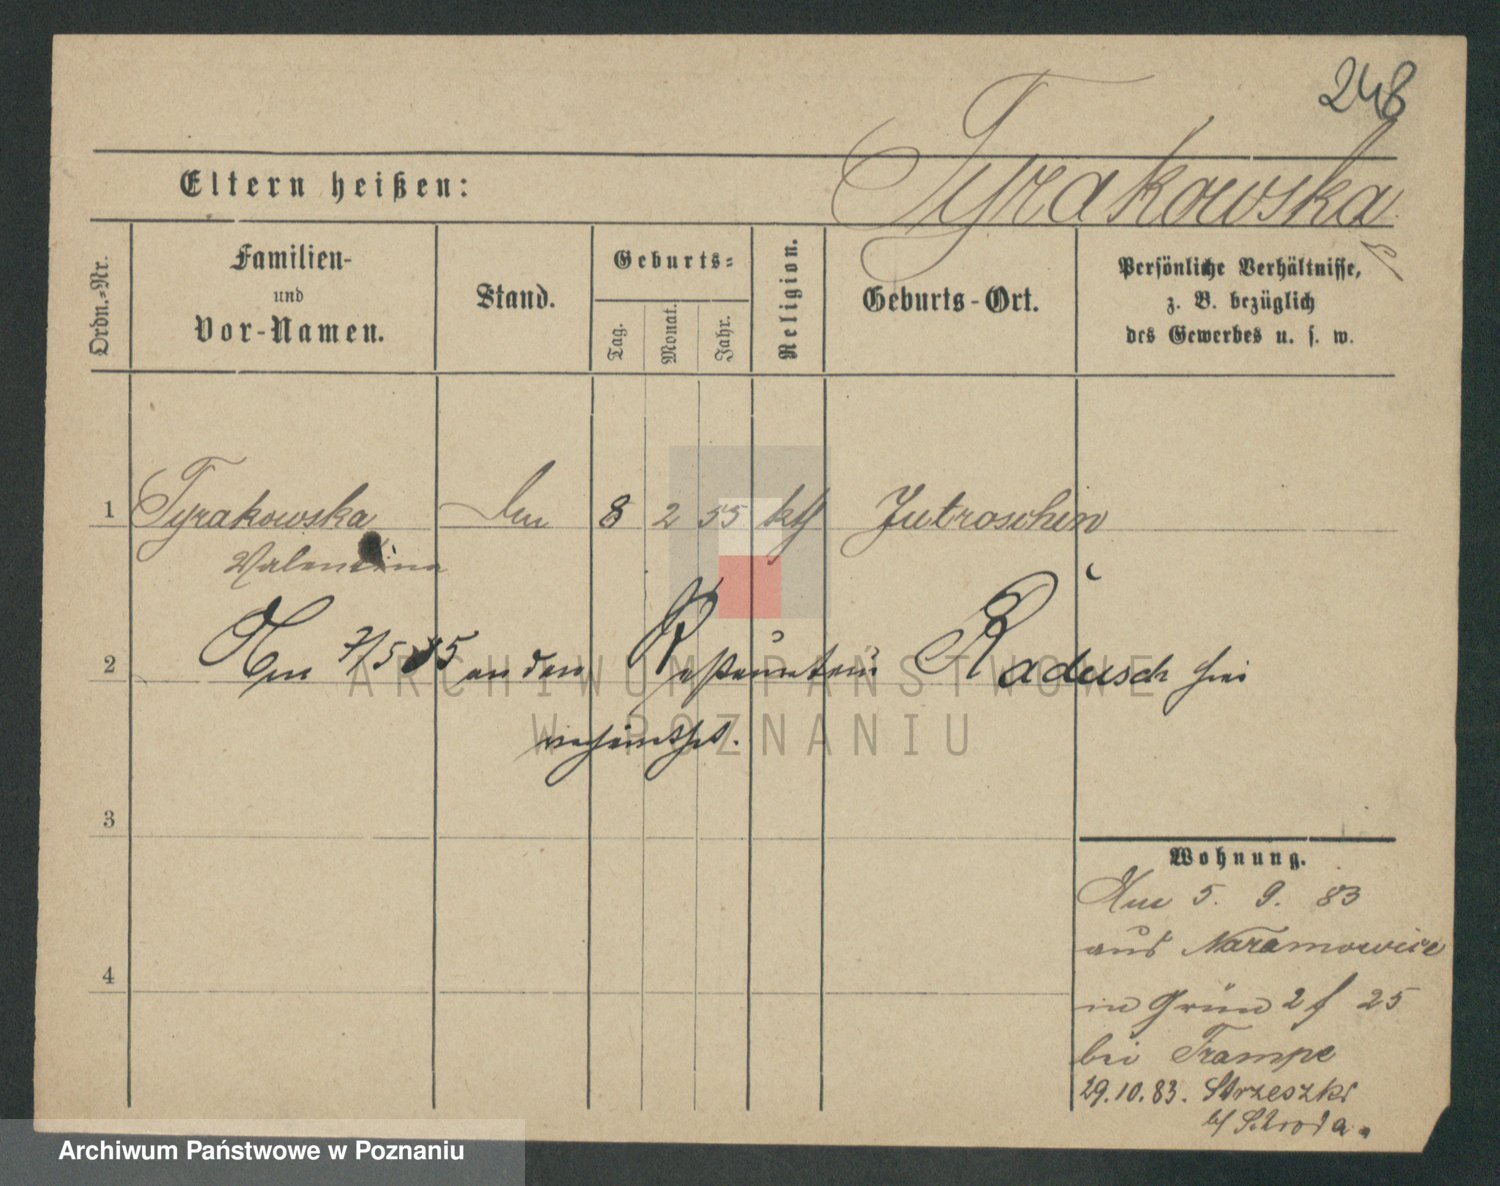 248
Tyrakowska
Eltern heißen:
Ordn.=Nr.
Familien-
und
Vor-Namen.
Stand.
Geburts=
Tag.
Monat.
Jahr.
Religion.
Geburts-Ort.
Persönliche Verhältnisse,
z. B. bezüglich
des Gewerbes u. s. w.
1 Tyrakowska 8 2 55 kth Jutroschin
Valentina
2 Am 7/5 85 an den Restaurateur Radusch hier
verheirathet.
3
4
Wohnung.
Am 5. 9. 83
aus Naramowice
in Grün 2 f 25
bei Trampe
29.10.83. Strzeszki
b/ Schroda.
ARCHIWUM PAŃSTWOWE
W POZNANIU
Archiwum Państwowe w Poznaniu